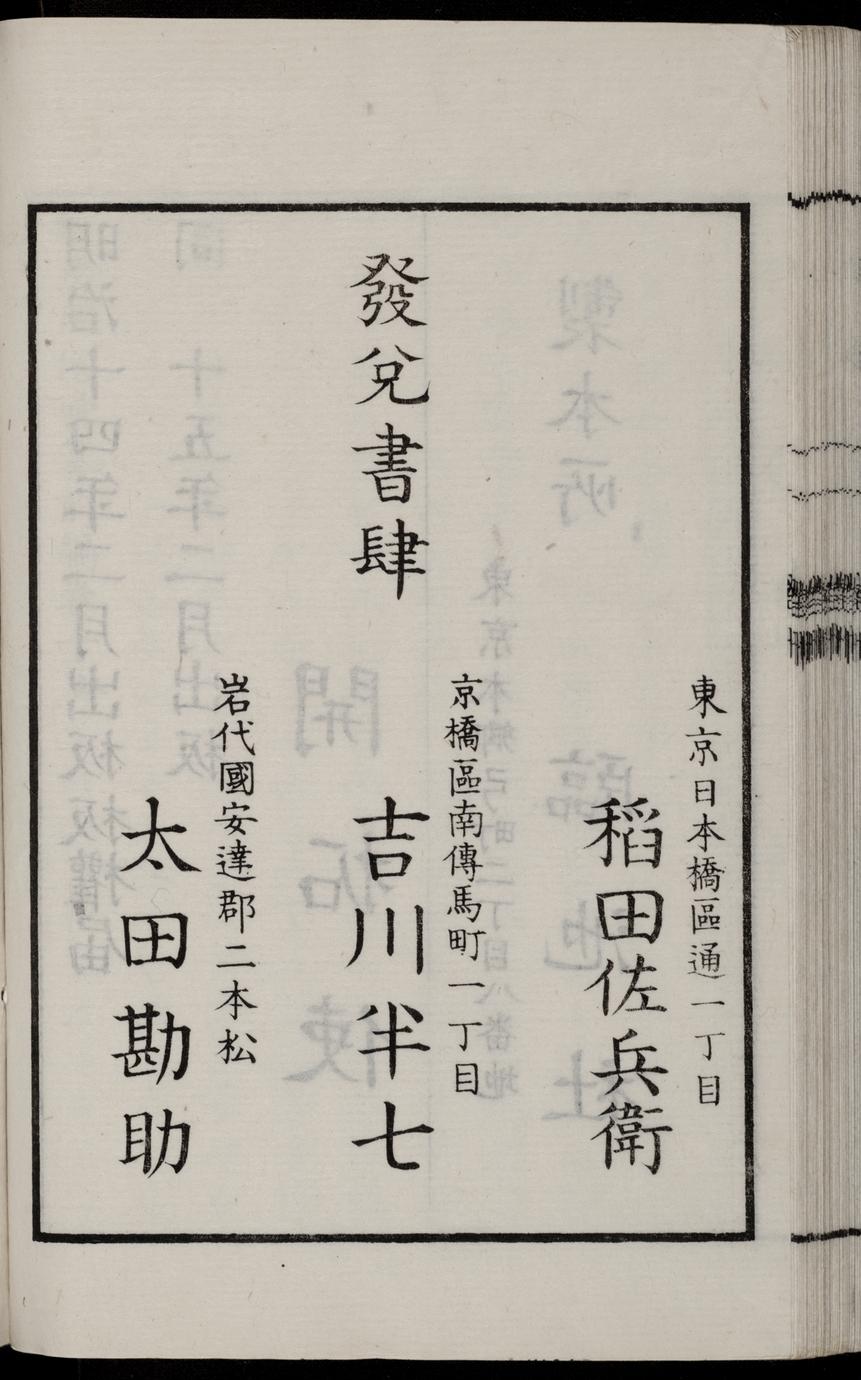 東京日本橋區通一丁目
稻田佐兵衛
京橋區南傳馬町一丁目
發兌書肆
吉川半七
岩代國安達郡二本松
太田勘助